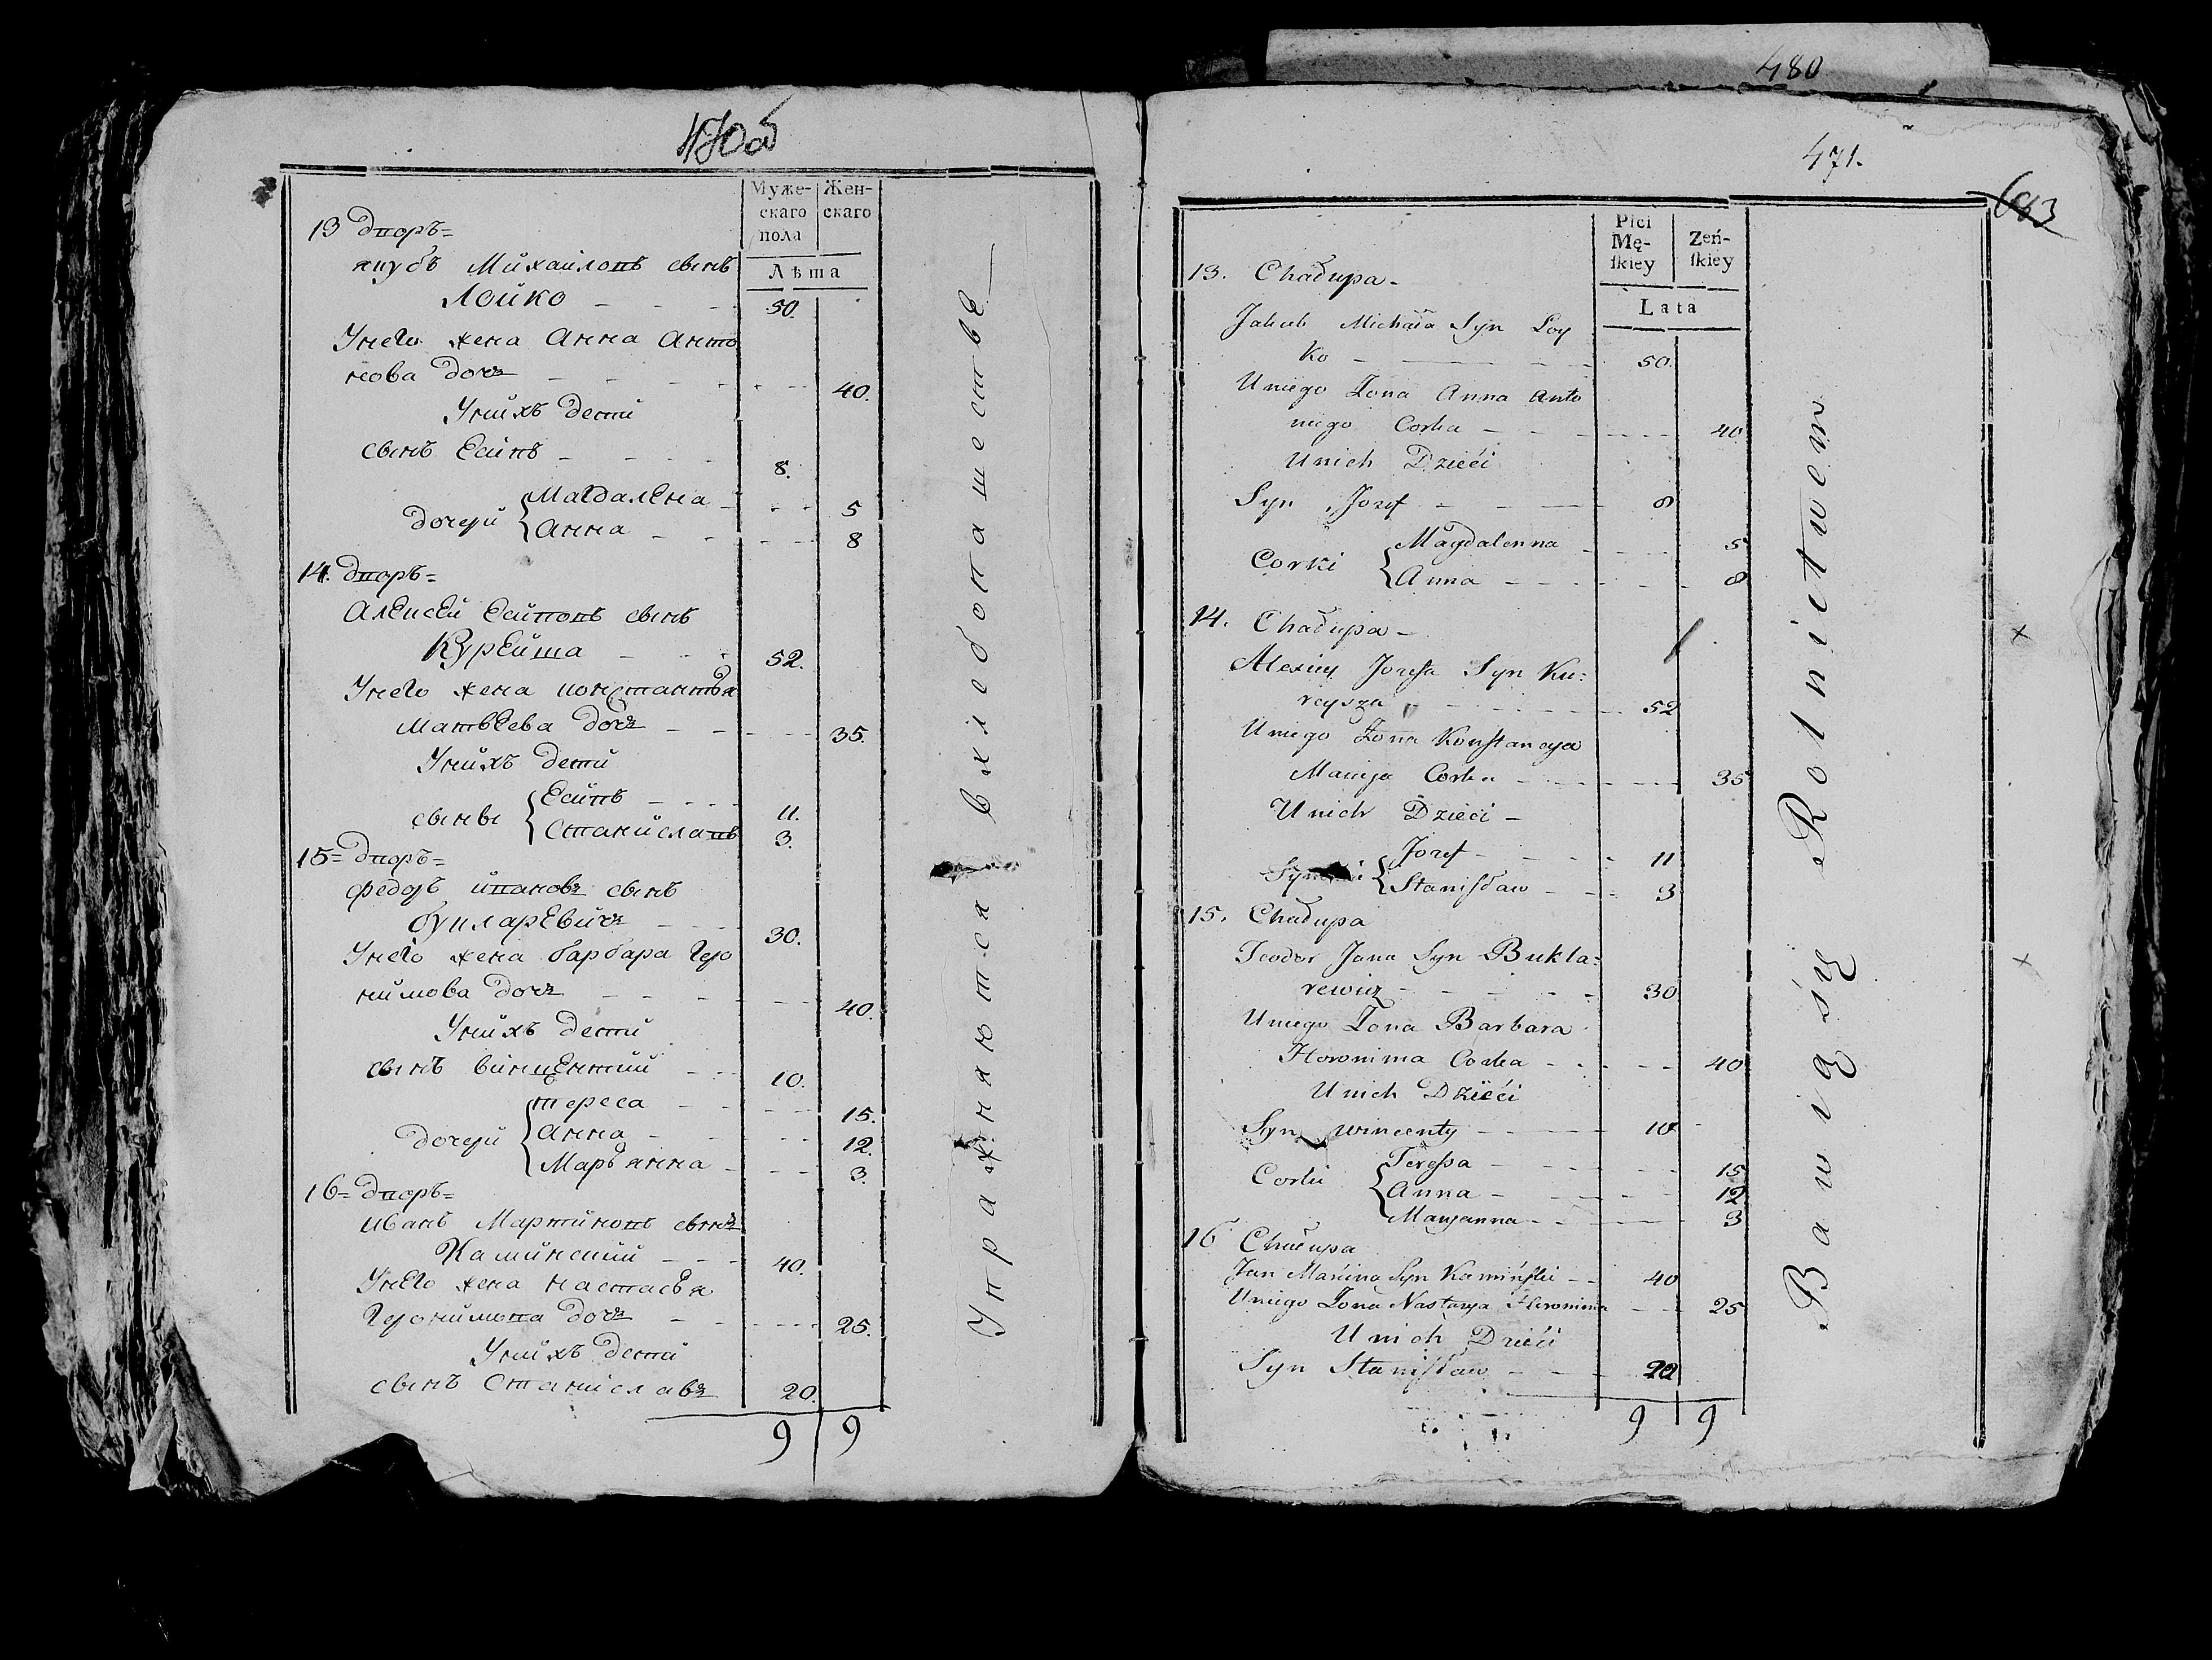 470б
Муже-
скаго
пола
Жен-
скаго
Лѣта
13 дворъ=
якубъ Михаиловъ сынъ
Лойко - - - 50.
Унего жена Анна Анто
нова дочь - - - 40.
Унихъ дети
сынъ Есипъ - - - 8.
дочери { Магдалена - - - 5
Анна - - - 8
14. дворъ=
Алексей Есиповъ сынъ
Курейша - - - 52.
Унего жена константья
матвеева дочь - - - 35.
Унихъ дети
сынвы { Есипъ - - - 11.
Станиславъ 3.
15= дворъ=
федоръ ивановъ сынъ
букларевичъ - - - 30.
Унего жена барбара Геро
нимова дочь - - - 40.
Унихъ дети
сынъ винцентий - - - 10.
дочери { тереса - - - 15.
Анна - - - 12.
Марьянна - - - 3.
16= дворъ=
иванъ Мартиновъ сынъ
Каминский - - - 40.
Унего жена настасья
Геронимова дочь - - - 25.
Унихъ дети
сынъ Станиславъ 20.
9 9
Упражняются в хлебопашестве
480
471.
683
Płci
Mę-
skiey
Żeń-
skiey
Lata
13. Chałupa -
Jakub Michała Syn Łoy
ko - - - 50.
Uniego Żona Anna Anto
niego Corka - - - 40
Unich Dzieći
Syn Jozef - - - 8
Corki { Magdalenna - - - 5
Anna - - - 8
14. Chałupa -
Alexiey Jozefa Syn Ku=
reysza - - - 52
Uniego Żona Konstancya
Macieja Corka - - - 35
Unich Dzieći -
{ Jozef - - - 11
Stanisław - - - 3
15. Chałupa
Teodor Jana Syn Bukla=
rewicz - - - 30
Uniego Żona Barbara
Heronima Corka - - - 40
Unich Dzieći
Syn wincenty - - - 10
Corki { Teressa - - - 15
Anna - - - 12
Maryanna - - - 3
16 Chałupa
Jan Marcina Syn Kamińſki - - 40
Uniego Żona Nastazya Heronima - - 25
Unich Dzieći
Syn Stanisław - - - 20
9 9
Bawią się Rolnictwem